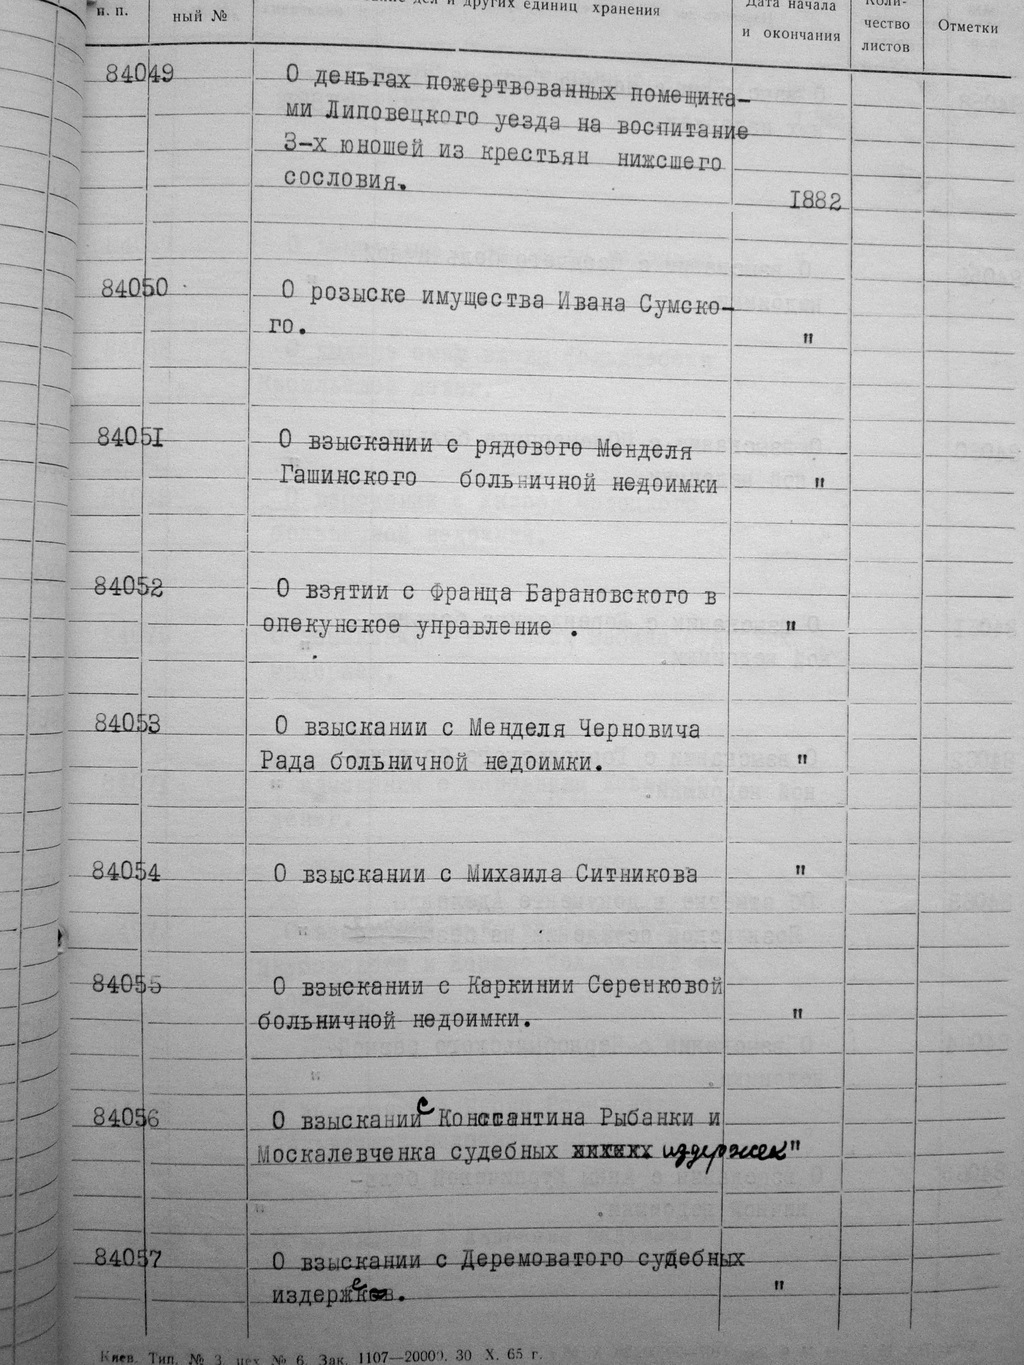 п. п.
ный №
дел и других единиц хранения
Дата начала
и окончания
Коли-
чество
листов
Отметки
84049 О деньгах пожертвованных помещика-
ми Липовецкого уезда на воспитание
3-х юношей из крестьян нижсшего
сословия.
1882
84050 О розыске имущества Ивана Сумско-
го. "
84051 О взыскании с рядового Менделя
Гашинского больничной недоимки "
84052 О взятии с Франца Барановского в
опекунское управление . "
84053 О взыскании с Менделя Черновича
Рада больничной недоимки. "
84054 О взыскании с Михаила Ситникова "
84055 О взыскании с Каркинии Серенковой
больничной недоимки. "
84056 О взыскании с Константина Рыбанки и
Москалевченка судебных издержек "
84057 О взыскании с Деремоватого судебных
издержек. "
Киев. Тип. № 3, цех № 6. Зак. 1107—20000. 30 X. 65 г.